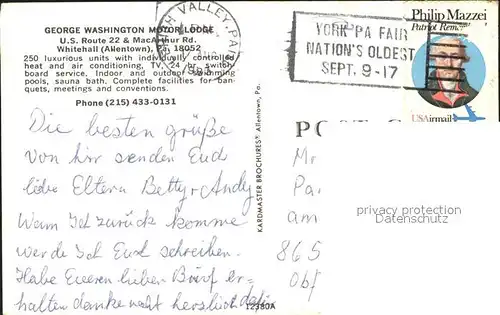 GEORGE WASHINGTON MOTOR LODGE
U.S. Route 22 & MacArthur Rd.
Whitehall (Allentown), Pa. 18052
250 luxurious units with individually controlled
heat and air conditioning, TV, 24 hr. switch-
board service. Indoor and outdoor swimming
pools, sauna bath. Complete facilities for ban-
quets, meetings and conventions.
Phone (215) 433-0131
Die besten grüße
von hir senden Euch
liebe Eltern Betty + Andy
Wann Ich zurück komme
werde Ich Euch schreiben.
Habe Eueren lieben Brief er-
halten danke recht herzlich dafür
12380A
KARDMASTER BROCHURES® Allentown, Pa.
LEHIGH VALLEY, PA
1983
YORK PA FAIR
NATION'S OLDEST
SEPT. 9-17
Philip Mazzei
Patriot Remembered
USAirmail
POST C
Mr
Pa
am
865
Obf
privacy protection